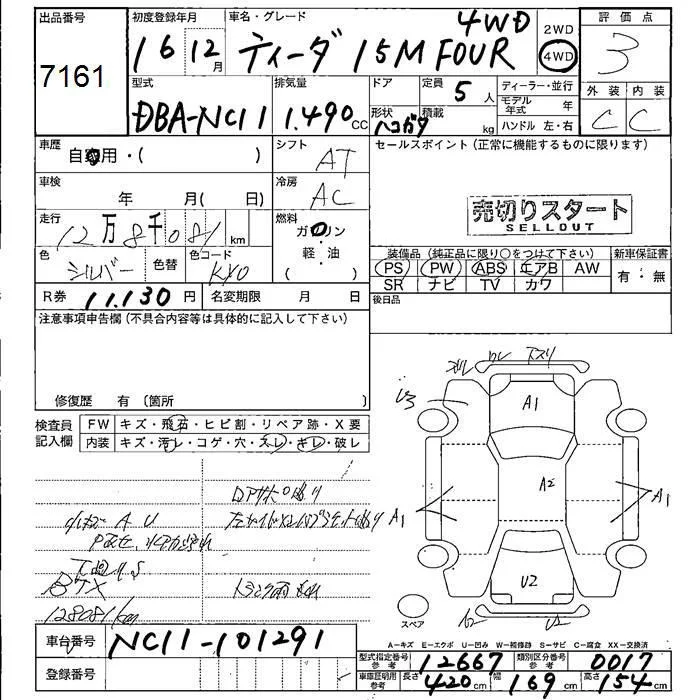 出品番号
7161
初度登録年月
16 12月
車名・グレード
ティーダ 15M FOUR 4WD
2WD
4WD
評価点
3
外装 内装
C C
型式
DBA-NC11
排気量
1.490 cc
ドア
形状
ハコガタ
定員
5人
積載
kg
ディーラー・並行
モデル年式 年
ハンドル 左・右
車歴
自家用・( )
シフト
AT
車検
年 月( 日)
冷房
AC
走行
12万8千081km
燃料
ガソリン
軽・油
( )
色
シルバー
色替
色コード
KY0
R券
11,130円
名変期限 月 日
セールスポイント(正常に機能するものに限ります)
売切りスタート
SELLOUT
装備品(純正品に限り○をつけて下さい)
PS PW ABS エアB AW
SR ナビ TV カワ
新車保証書
有・無
後日品
注意事項申告欄(不具合内容等は具体的に記入して下さい)
修復歴 有(箇所 )
検査員記入欄
FW キズ・飛石・ヒビ割・リペア跡・X要
内装 キズ・汚レ・コゲ・穴・スレ・キレ・破レ
A U
128081km
U3
A1
A2
A1
A1
U2
スペア
A-キズ E-エクボ U-凹み W-補修跡 S-サビ C-腐食 XX-交換済
車台番号
NC11-101291
登録番号
型式指定番号参考
12667
類別区分番号参考
0017
車庫証明用参考
長さ 420cm 幅 169cm 高さ 154cm